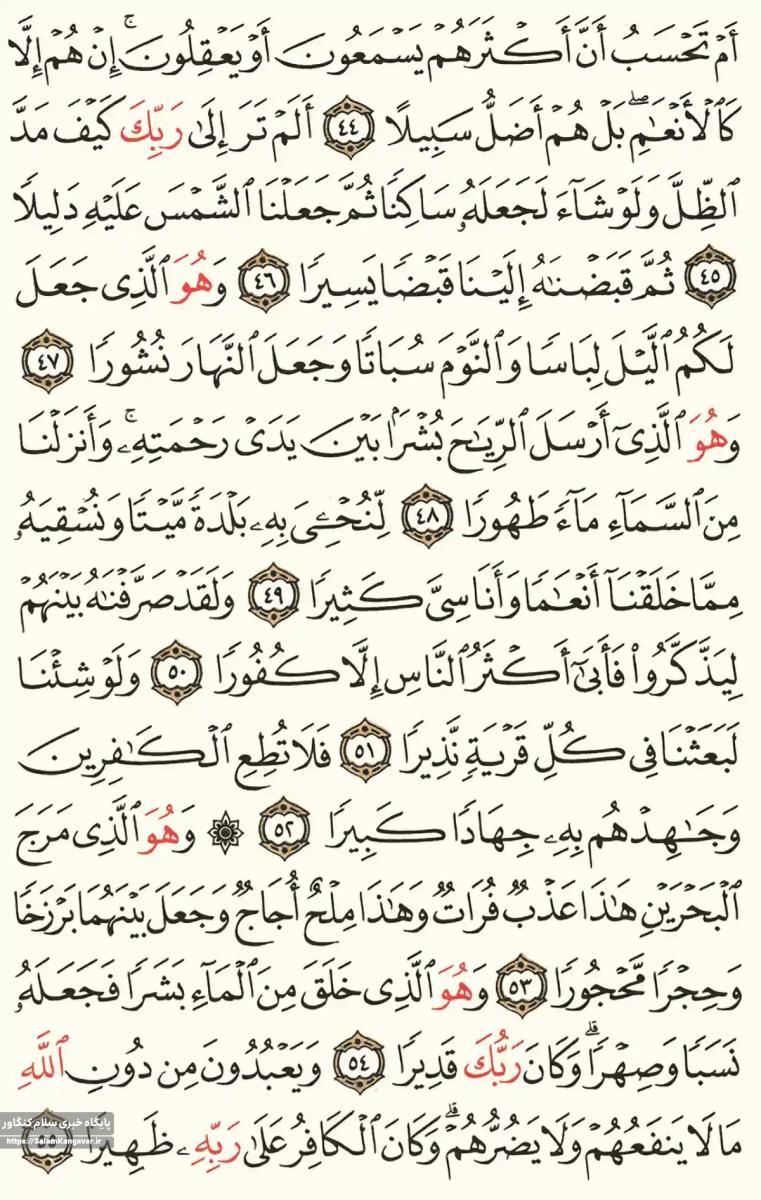 أَمْ تَحْسَبُ أَنَّ أَكْثَرَهُمْ يَسْمَعُونَ أَوْ يَعْقِلُونَ ۚ إِنْ هُمْ إِلَّا
كَٱلْأَنْعَٰمِ ۖ بَلْ هُمْ أَضَلُّ سَبِيلًا ٤٤ أَلَمْ تَرَ إِلَىٰ رَبِّكَ كَيْفَ مَدَّ
ٱلظِّلَّ وَلَوْ شَآءَ لَجَعَلَهُۥ سَاكِنًا ثُمَّ جَعَلْنَا ٱلشَّمْسَ عَلَيْهِ دَلِيلًا
٤٥ ثُمَّ قَبَضْنَٰهُ إِلَيْنَا قَبْضًا يَسِيرًا ٤٦ وَهُوَ ٱلَّذِى جَعَلَ
لَكُمُ ٱلَّيْلَ لِبَاسًا وَٱلنَّوْمَ سُبَاتًا وَجَعَلَ ٱلنَّهَارَ نُشُورًا ٤٧
وَهُوَ ٱلَّذِىٓ أَرْسَلَ ٱلرِّيَٰحَ بُشْرًۢا بَيْنَ يَدَىْ رَحْمَتِهِۦ ۚ وَأَنزَلْنَا
مِنَ ٱلسَّمَآءِ مَآءً طَهُورًا ٤٨ لِّنُحْـِۧىَ بِهِۦ بَلْدَةً مَّيْتًا وَنُسْقِيَهُۥ
مِمَّا خَلَقْنَآ أَنْعَٰمًا وَأَنَاسِىَّ كَثِيرًا ٤٩ وَلَقَدْ صَرَّفْنَٰهُ بَيْنَهُمْ
لِيَذَّكَّرُوا۟ فَأَبَىٰٓ أَكْثَرُ ٱلنَّاسِ إِلَّا كُفُورًا ٥٠ وَلَوْ شِئْنَا
لَبَعَثْنَا فِى كُلِّ قَرْيَةٍ نَّذِيرًا ٥١ فَلَا تُطِعِ ٱلْكَٰفِرِينَ
وَجَٰهِدْهُم بِهِۦ جِهَادًا كَبِيرًا ٥٢ ۞ وَهُوَ ٱلَّذِى مَرَجَ
ٱلْبَحْرَيْنِ هَٰذَا عَذْبٌ فُرَاتٌ وَهَٰذَا مِلْحٌ أُجَاجٌ وَجَعَلَ بَيْنَهُمَا بَرْزَخًا
وَحِجْرًا مَّحْجُورًا ٥٣ وَهُوَ ٱلَّذِى خَلَقَ مِنَ ٱلْمَآءِ بَشَرًا فَجَعَلَهُۥ
نَسَبًا وَصِهْرًا ۗ وَكَانَ رَبُّكَ قَدِيرًا ٥٤ وَيَعْبُدُونَ مِن دُونِ ٱللَّهِ
مَا لَا يَنفَعُهُمْ وَلَا يَضُرُّهُمْ ۗ وَكَانَ ٱلْكَافِرُ عَلَىٰ رَبِّهِۦ ظَهِيرًا ٥٥
پایگاه خبری سلام کنگاور
https://SalamKangavar.ir